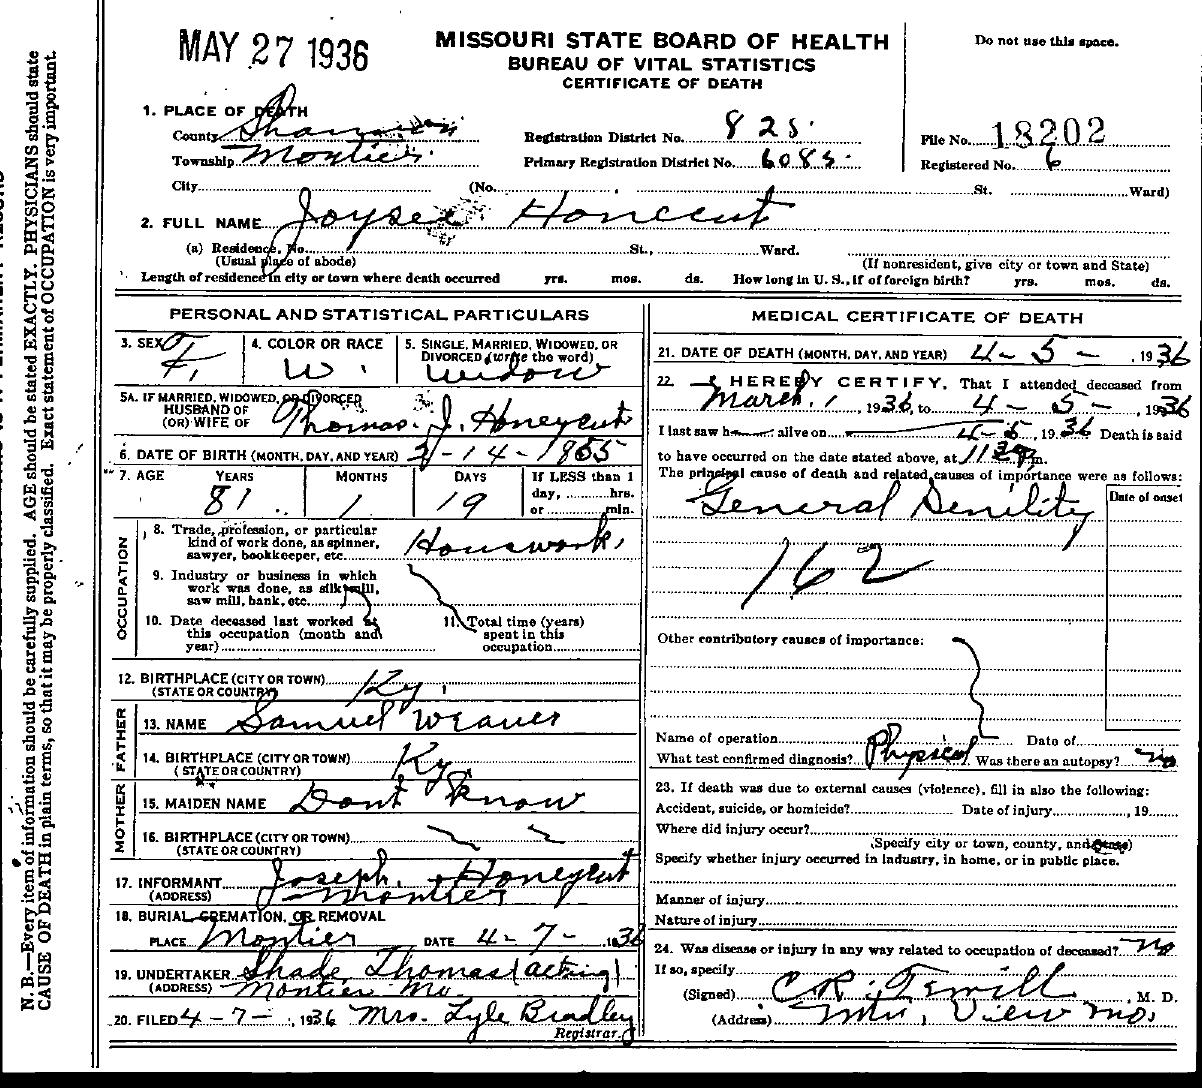 MAY 27 1936
MISSOURI STATE BOARD OF HEALTH
BUREAU OF VITAL STATISTICS
CERTIFICATE OF DEATH
Do not use this space.
1. PLACE OF DEATH
County Shannon Registration District No. 825. File No. 18202
Township Montier. Primary Registration District No. 6085. Registered No. 6
City (No. St. Ward)
2. FULL NAME Joysee Honccut
(a) Residence, No. St., Ward.
(Usual place of abode) (If nonresident, give city or town and State)
Length of residence in city or town where death occurred yrs. mos. ds. How long in U. S., if of foreign birth? yrs. mos. ds.
PERSONAL AND STATISTICAL PARTICULARS
3. SEX F. 4. COLOR OR RACE W. 5. SINGLE, MARRIED, WIDOWED, OR DIVORCED (write the word) Widow
5A. IF MARRIED, WIDOWED, OR DIVORCED
HUSBAND OF
(OR) WIFE OF Thomas. J. Honeycut
6. DATE OF BIRTH (MONTH, DAY, AND YEAR) -14-1855
7. AGE YEARS MONTHS DAYS If LESS than 1
81 1 19 day, hrs.
or min.
OCCUPATION
8. Trade, profession, or particular
kind of work done, as spinner,
sawyer, bookkeeper, etc. Housework,
9. Industry or business in which
work was done, as silk mill,
saw mill, bank, etc.
10. Date deceased last worked at
this occupation (month and
year)
11. Total time (years)
spent in this
occupation
12. BIRTHPLACE (CITY OR TOWN)
(STATE OR COUNTRY) Ky.
FATHER
13. NAME Samuel Weaver
14. BIRTHPLACE (CITY OR TOWN)
(STATE OR COUNTRY) Ky
MOTHER
15. MAIDEN NAME Dont Know
16. BIRTHPLACE (CITY OR TOWN)
(STATE OR COUNTRY)
17. INFORMANT Joseph. Honeycut
(ADDRESS) Montier
18. BURIAL, CREMATION, OR REMOVAL
PLACE Montier DATE 4-7-, 1936
19. UNDERTAKER Shade Thomas (acting)
(ADDRESS) Montier Mo
20. FILED 4-7-, 1936 Mrs. Lyle Bradley
Registrar.
MEDICAL CERTIFICATE OF DEATH
21. DATE OF DEATH (MONTH, DAY, AND YEAR) 4-5-, 1936
22. I HEREBY CERTIFY, That I attended deceased from
March, 1, 1936, to 4-5-, 1936
I last saw h alive on 4-5, 1936 Death is said
to have occurred on the date stated above, at 11 m.
The principal cause of death and related causes of importance were as follows:
General Senility
Date of onset
162
Other contributory causes of importance:
Name of operation Date of
What test confirmed diagnosis? Physical Was there an autopsy? no
23. If death was due to external causes (violence), fill in also the following:
Accident, suicide, or homicide? Date of injury, 19
Where did injury occur?
(Specify city or town, county, and State)
Specify whether injury occurred in industry, in home, or in public place.
Manner of injury
Nature of injury
24. Was disease or injury in any way related to occupation of deceased? no
If so, specify
(Signed) C.R. Terrill, M. D.
(Address) Mtn, View Mo.
N. B.—Every item of information should be carefully supplied. AGE should be stated EXACTLY. PHYSICIANS should state
CAUSE OF DEATH in plain terms, so that it may be properly classified. Exact statement of OCCUPATION is very important.